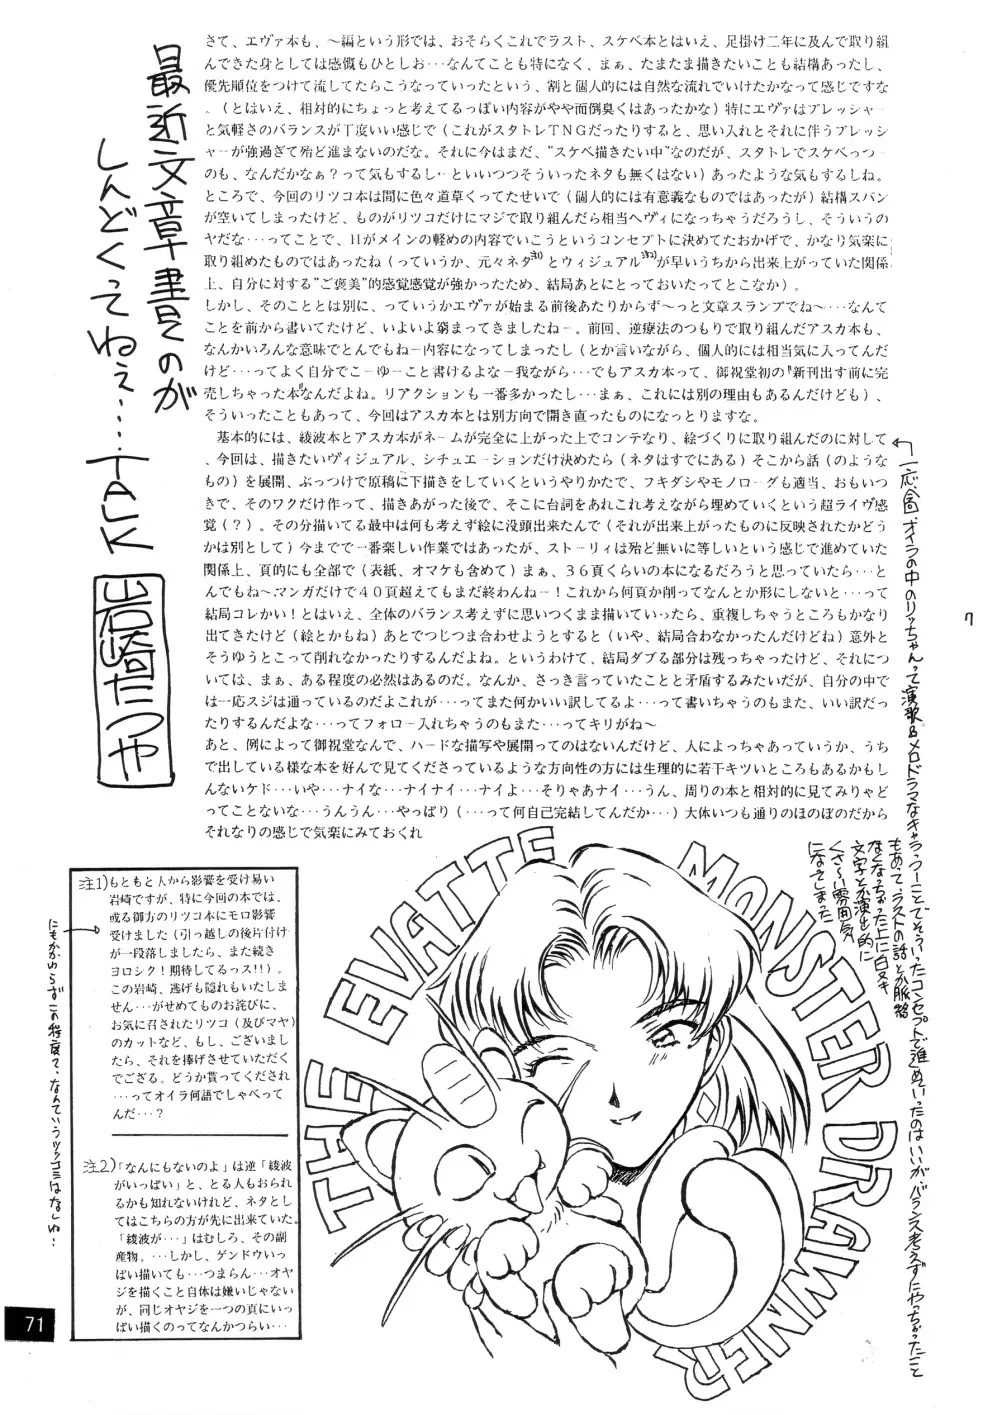 最近文章書くのが
しんどくってねぇ…TALK
岩崎たつや
さて、エヴァ本も、～編という形では、おそらくこれでラスト、スケベ本とはいえ、足掛け二年に及んで取り組
んできた身としては感慨もひとしお…なんてことも特になく、まぁ、たまたま描きたいことも結構あったし、
優先順位をつけて流してたらこうなっていったという、割と個人的には自然な流れでいけたかなって感じですな
。（とはいえ、相対的にちょっと考えてるっぽい内容がやや面倒臭くはあったかな）特にエヴァはプレッシャー
と気軽さのバランスが丁度いい感じで（これがスタトレTNGだったりすると、思い入れとそれに伴うプレッシ
ャーが強過ぎて殆ど進まないのだな。それに今はまだ、“スケベ描きたい中”なのだが、スタトレでスケベっつー
のも、なんだかなぁ？って気もするし…といいつつそういったネタも無くはない）あったような気もするしね。
ところで、今回のリツコ本は間に色々道草くってたせいで（個人的には有意義なものではあったが）結構スパン
が空いてしまったけど、ものがリツコだけにマジで取り組んだら相当ヘヴィになっちゃうだろうし、そういうの
ヤだな…ってことで、Hがメインの軽めの内容でいこうというコンセプトに決めてたおかげで、かなり気楽に
取り組めたものではあったね（っていうか、元々ネタ注1)とヴィジュアル注2)が早いうちから出来上がっていた関係
上、自分に対する“ご褒美”的感覚感覚が強かったため、結局あとにとっておいたってとこなか）。
しかし、そのこととは別に、っていうかエヴァが始まる前後あたりからず～っと文章スランプでね～…なんて
ことを前から書いてたけど、いよいよ窮まってきましたねー。前回、逆療法のつもりで取り組んだアスカ本も、
なんかいろんな意味でとんでもねー内容になってしまったし（とか言いながら、個人的には相当気に入ってんだ
けど…ってよく自分でこーゆーこと書けるよなー我ながら…でもアスカ本って、御祝堂初の“新刊出す前に完
売しちゃった本”なんだよね。リアクションも一番多かったし…まぁ、これには別の理由もあるんだけども）、
そういったこともあって、今回はアスカ本とは別方向で開き直ったものになっとりますな。
基本的には、綾波本とアスカ本がネームが完全に上がった上でコンテなり、絵づくりに取り組んだのに対して
、今回は、描きたいヴィジュアル、シチュエーションだけ決めたら（ネタはすでにある）そこから話（のような
もの）を展開、ぶっつけで原稿に下描きをしていくというやりかたで、フキダシやモノローグも適当、おもいつ
きで、そのワクだけ作って、描きあがった後で、そこに台詞をあれこれ考えながら埋めていくという超ライヴ感
覚（？）。その分描いてる最中は何も考えず絵に没頭出来たんで（それが出来上がったものに反映されたかどう
かは別として）今までで一番楽しい作業ではあったが、ストーリィは殆ど無いに等しいという感じで進めていた
関係上、頁的にも全部で（表紙、オマケも含めて）まぁ、36頁くらいの本になるだろうと思っていたら…と
んでもね～マンガだけで40頁超えてもまだ終わんねー！これから何頁か削ってなんとか形にしないと…って
結局コレかい！とはいえ、全体のバランス考えずに思いつくまま描いていったら、重複しちゃうところもかなり
出てきたけど（絵とかもね）あとでつじつま合わせようとすると（いや、結局合わなかったんだけどね）意外と
そうゆうとこって削れなかったりするんだよね。というわけて、結局ダブる部分は残っちゃったけど、それにつ
いては、まぁ、ある程度の必然はあるのだ。なんか、さっき言っていたことと矛盾するみたいだが、自分の中で
は一応スジは通っているのだよこれが…ってまた何かいい訳してるよ…って書いちゃうのもまた、いい訳だっ
たりするんだよな…ってフォロー入れちゃうのもまた…ってキリがね～
あと、例によって御祝堂なんで、ハードな描写や展開ってのはないんだけど、人によっちゃあっていうか、うち
で出している様な本を好んで見てくださっているような方向性の方には生理的に若干キツいところもあるかもし
んないケド…いや…ナイな…ナイナイ…ナイよ…そりゃあナイ…うん、周りの本と相対的に見てみりゃど
ってことないな…うんうん…やっぱり（…って何自己完結してんだか…）大体いつも通りのほのぼのだから
それなりの感じで気楽にみておくれ
←一応、今回、オイラの中のりっちゃんって演歌&メロドラマなキャラっつーことでそういったコンセプトで進めていったのはいいが、バランス考えずにやっちゃったこと
もあって、ラストの話とか脈絡
なくなっちゃった上に白ヌキ
文字とか演出的に
くさ～い雰囲気
になってしまった
注1)もともと人から影響を受け易い
岩崎ですが、特に今回の本では、
或る御方のリツコ本にモロ影響
受けました（引っ越しの後片付け
が一段落しましたら、また続き
ヨロシク！期待してるっス!!）。
この岩崎、逃げも隠れもいたしま
せん…がせめてものお詫びに、
お気に召されたリツコ（及びマヤ）
のカットなど、もし、ございまし
たら、それを捧げさせていただく
でござる。どうか貰ってくだされ
…ってオイラ何語でしゃべって
んだ…？
にもかかわらずこの程度で、なんていうツッコミはなしね…
注2)「なんにもないのよ」は逆「綾波
がいっぱい」と、とる人もおられ
るかも知れないけれど、ネタとし
てはこちらの方が先に出来ていた。
「綾波が…」はむしろ、その副
産物、…しかし、ゲンドウいっ
ぱい描いても…つまらん…オヤ
ジを描くこと自体は嫌いじゃない
が、同じオヤジを一つの頁にいっ
ぱい描くのってなんかつらい…
THE EVATTE MONSTER DRAWNER
71
7